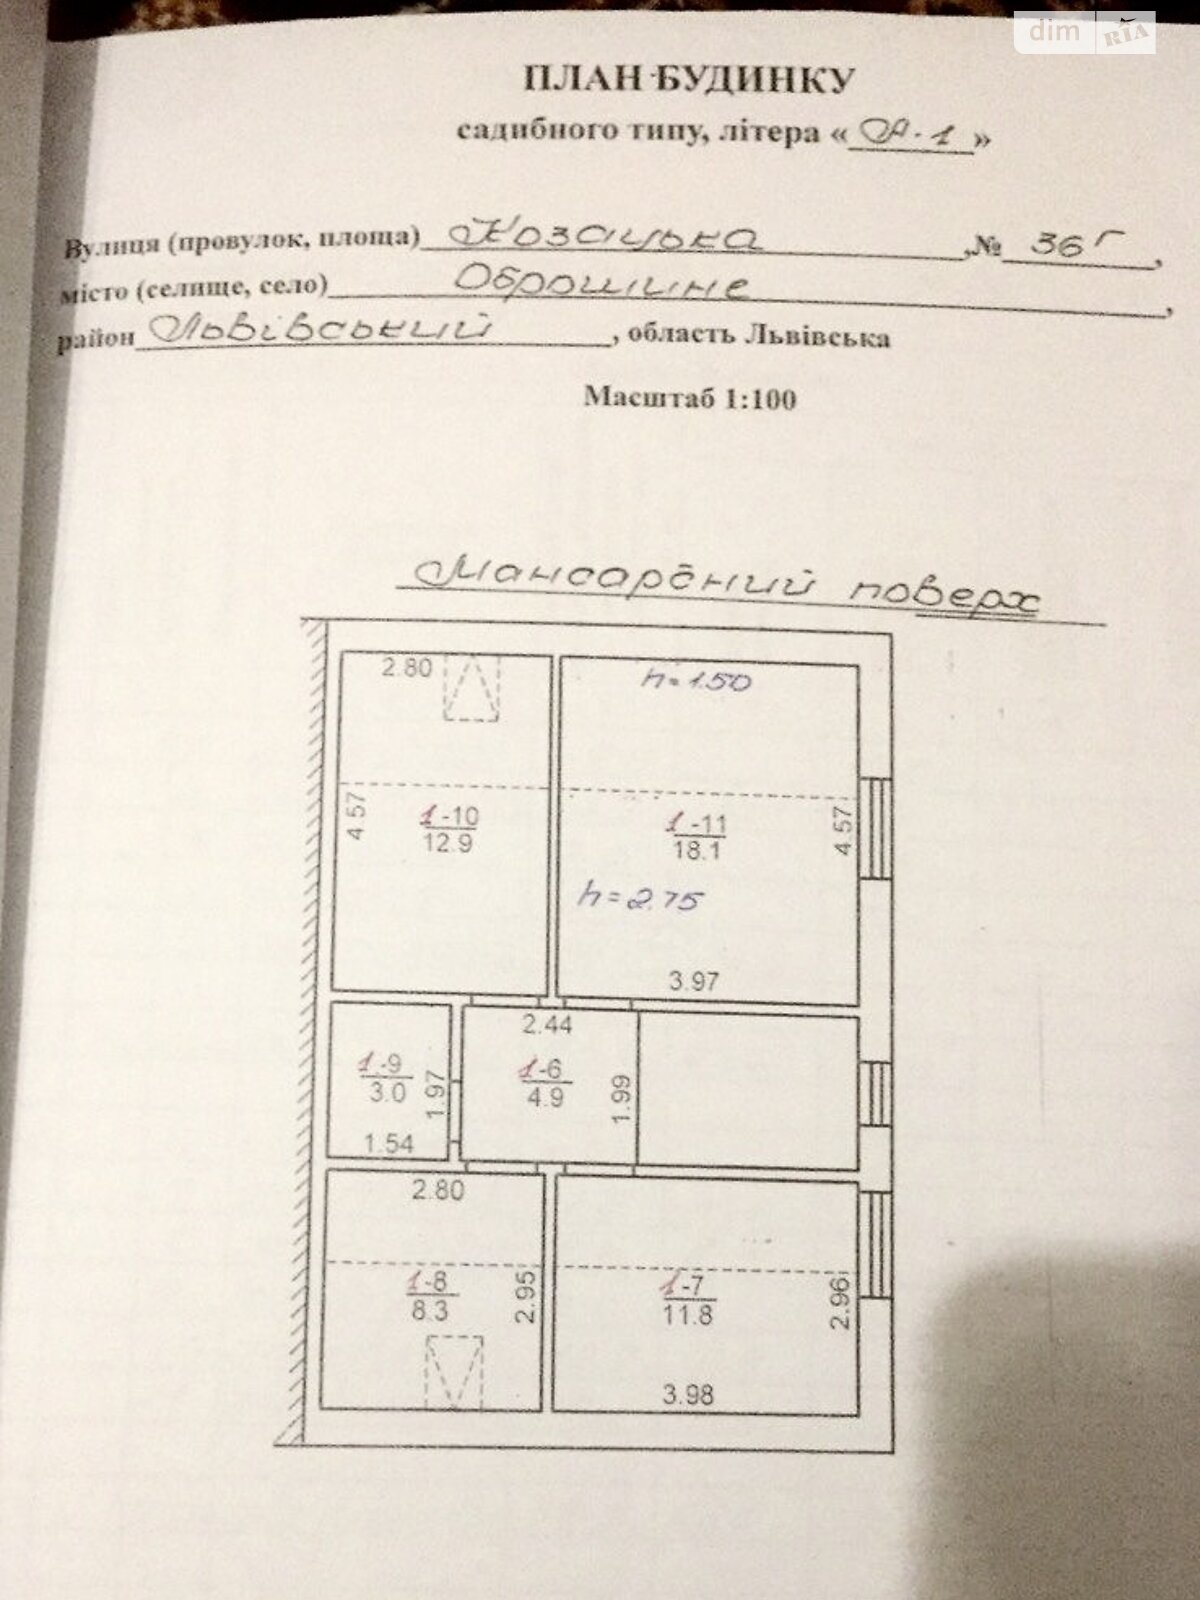 dim RIA
ПЛАН БУДИНКУ
садибного типу, літера «А-1»
Вулиця (провулок, площа) Козацька, № 36г,
місто (селище, село) Оброшине,
район Львівський, область Львівська
Масштаб 1:100
Мансардний поверх
2.80
h=1.50
4.57
1-10
12.9
1-11
18.1
4.57
h=2.75
3.97
2.44
1-9
3.0
1.97
1-6
4.9
1.99
1.54
2.80
1-8
8.3
2.95
1-7
11.8
2.96
3.98